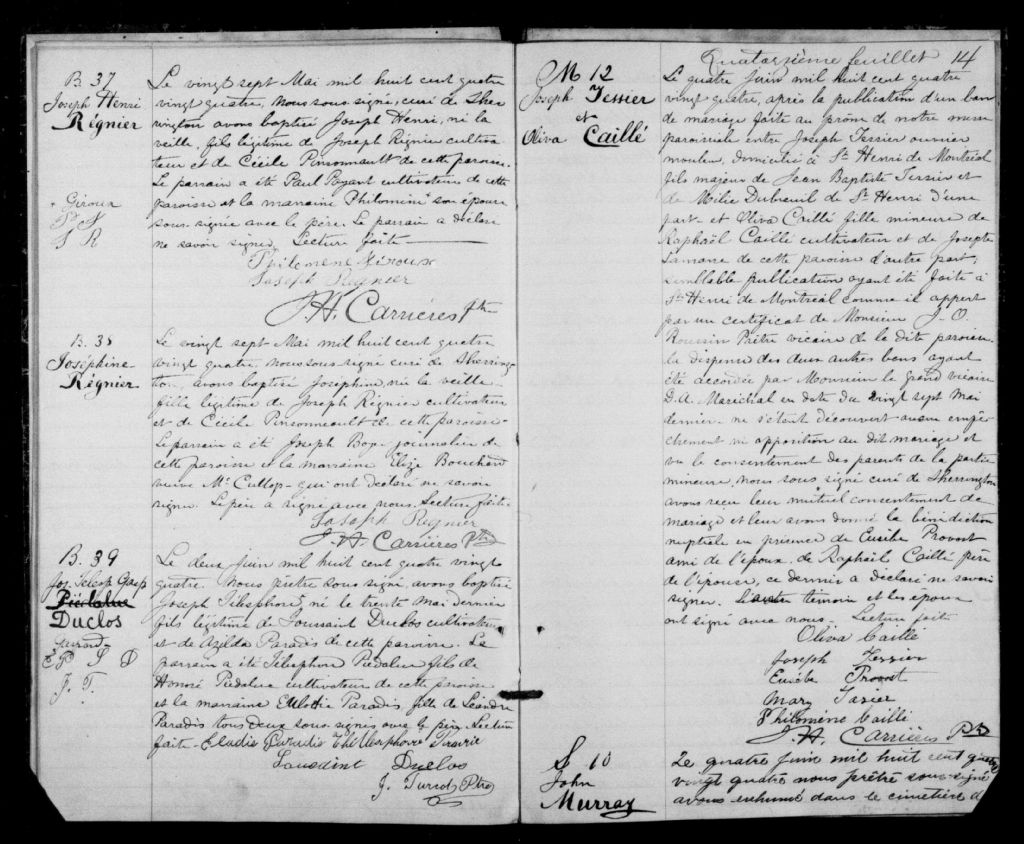 B. 37
Joseph Henri
Régnier
Le vingt sept Mai mil huit cent quatre
vingt quatre, nous sous signé, curé de Sher
rington avons baptisé Joseph Henri, né la
veille, fils légitime de Joseph Régnier cultiva-
teur et de Cécile Pinsonnault de cette paroisse.
Le parrain a été Paul Payant cultivateur de cette
paroisse et la marraine Philomène son épouse
sous-signée avec le père. Le parrain a déclaré
ne savoir signer. Lecture faite
Giroux
J R
Philomene Giroux
Joseph Regnier
J.H. Carrières Ptre
B. 38
Joséphine
Régnier
Le vingt sept Mai mil huit cent quatre
vingt quatre, nous sous signé curé de Sherring-
ton, avons baptisé Joséphine, née la veille
fille légitime de Joseph Régnier cultivateur
et de Cécile Pinsonneault de cette paroisse.
Le parrain a été Joseph Boye journalier de
cette paroisse et la marraine Elize Bouchard
veuve Mc Cullop - qui ont déclaré ne savoir
signer. Le père a signé avec nous. Lecture faite
Joseph Regnier
J. H. Carrières Ptre
B. 39
Jos. Telesp
Duclos
J. T.
Le deux Juin mil huit cent quatre vingt
quatre. Nous prêtre sous signé, avons baptisé
Joseph Télesphore, né le trente Mai dernier
fils légitime de Toussaint Duclos cultivateur
et de Azilda Paradis de cette paroisse. Le
parrain a été Télesphore Piédalue fils de
Honoré Piédalue cultivateur de cette paroisse
et la marraine Elodie Paradis, fille de Léandre
Paradis tous deux sous-signés avec le père. Lecture
faite - Elodie Paradis
Duclos
J. Turcot Ptre
Quatorzième feuillet 14
M 12
Joseph Tessier
et
Oliva Caillé
Le quatre Juin mil huit cent quatre
vingt quatre, après la publication d'un ban
de mariage faite au prône de notre messe
paroissiale entre Joseph Tessier ouvrier
mouleur, domicilié à St Henri de Montréal
fils majeur de Jean Baptiste Tessier et
de Mélie Dubreuil de St Henri d'une
part et Oliva Caillé fille mineure de
Raphaël Caillé cultivateur et de Josepte
Lamarre de cette paroisse d'autre part;
semblable publication ayant été faite à
St Henri de Montréal comme il appert
par un certificat de Monsieur J. O.
Roussin Prêtre vicaire de la dite paroisse
la dispense des deux autres bans ayant
été accordée par Monsieur le grand vicaire
L. A. Maréchal en date du vingt sept Mai
dernier - ne s'étant découvert aucun empê-
chement ni opposition au dit mariage et
vu le consentement des parents de la partie
mineure, nous sous signé curé de Sherrington
avons reçu leur mutuel consentement de
mariage et leur avons donné la bénédiction
nuptiale en présence de Eusèbe Provost
ami de l'époux, de Raphaël Caillé père
de l'épouse, ce dernier a déclaré ne savoir
signer. L'autre témoin et les époux
ont signé avec nous. Lecture faite
Oliva Caillé
Joseph Tessier
Eusèbe Provost
Mary
Philomène Caillé
J. H. Carrières Ptre
S 10
John
Murray
Le quatre Juin mil huit cent quatre
vingt quatre nous prêtre sous-signé
avons inhumé dans le cimetière d